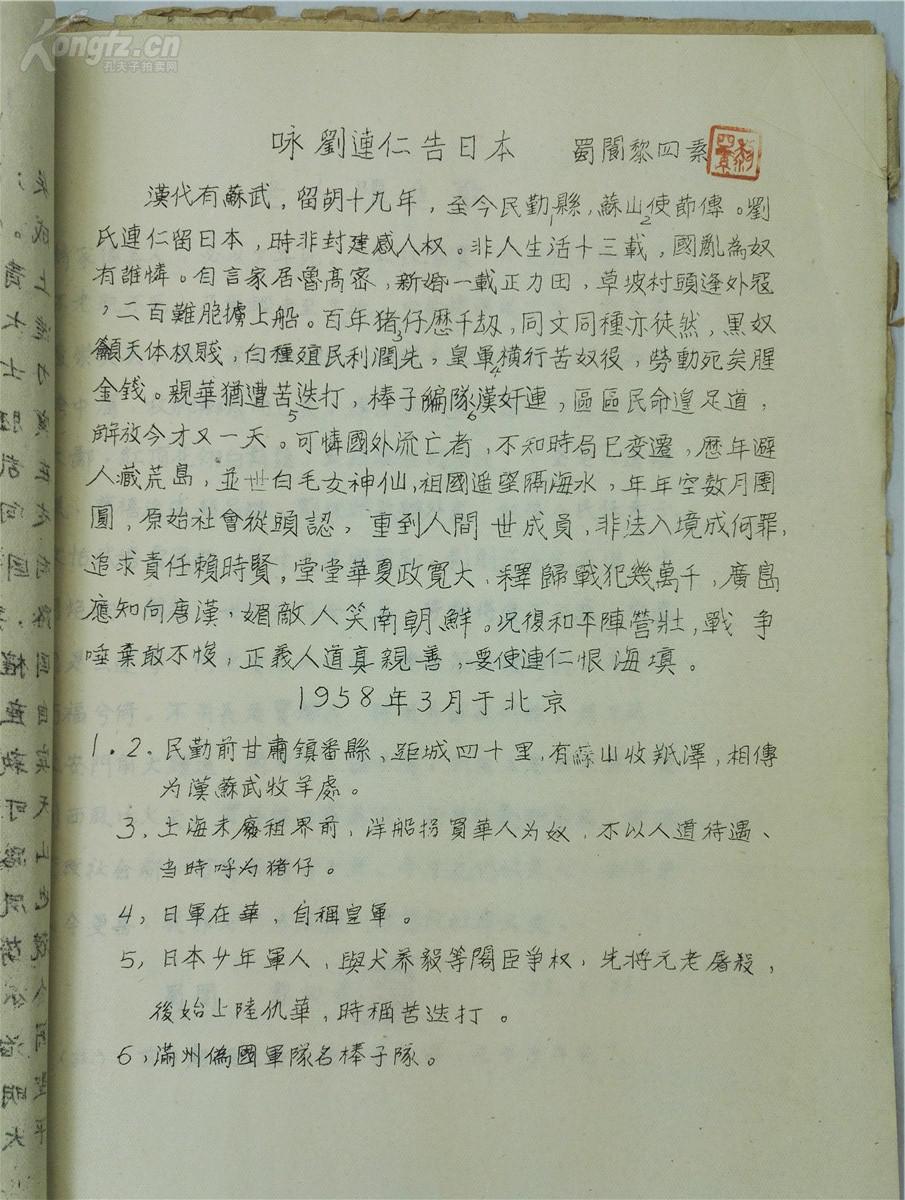 Kongfz.cn
孔夫子拍卖网
咏劉連仁告日本 蜀閬黎四素
漢代有蘇武，留胡十九年，至今民勤1縣，蘇山2使節傳。劉
氏連仁留日本，時非封建感人权。非人生活十三載，國亂為奴
有誰憐。自言家居魯高密，新婚一載正力田，草坡村頭逢外寇
，二百難胞擄上船。百年猪仔3歷千劫，同文同種亦徒然，黑奴
籲天体权賤，白種殖民利潤先，皇軍4横行苦奴役，勞動死矣腥
金錢。親華猶遭苦迭打5，棒子編隊6漢奸連，區區民命遑足道，
解放今才又一天。可憐國外流亡者，不知時局已變遷，歷年避
人藏荒島，並世白毛女神仙，祖國遥望隔海水，年年空数月團
圓，原始社會從頭認，重到人間世成員，非法入境成何罪，
追求責任賴時賢。堂堂華夏政寬大，釋歸戰犯幾萬千，廣島
應知向唐漢，媚敵人笑南朝鮮。况復和平陣營壯，戰争
唾棄敢不悛，正義人道真親善，要使連仁恨海填。
1958年3月于北京
1.2.民勤前甘肅鎮番縣、距城四十里，有蘇山收羝澤，相傳
为漢蘇武牧羊處。
3，上海未廢租界前，洋船拐買華人为奴，不以人道待遇、
当時呼为猪仔。
4，日軍在華，自稱皇軍。
5，日本少年軍人，與犬养毅等閣臣争权，先將元老屠殺，
後始上陸仇華，時稱苦迭打。
6，滿州偽國軍隊名棒子隊。